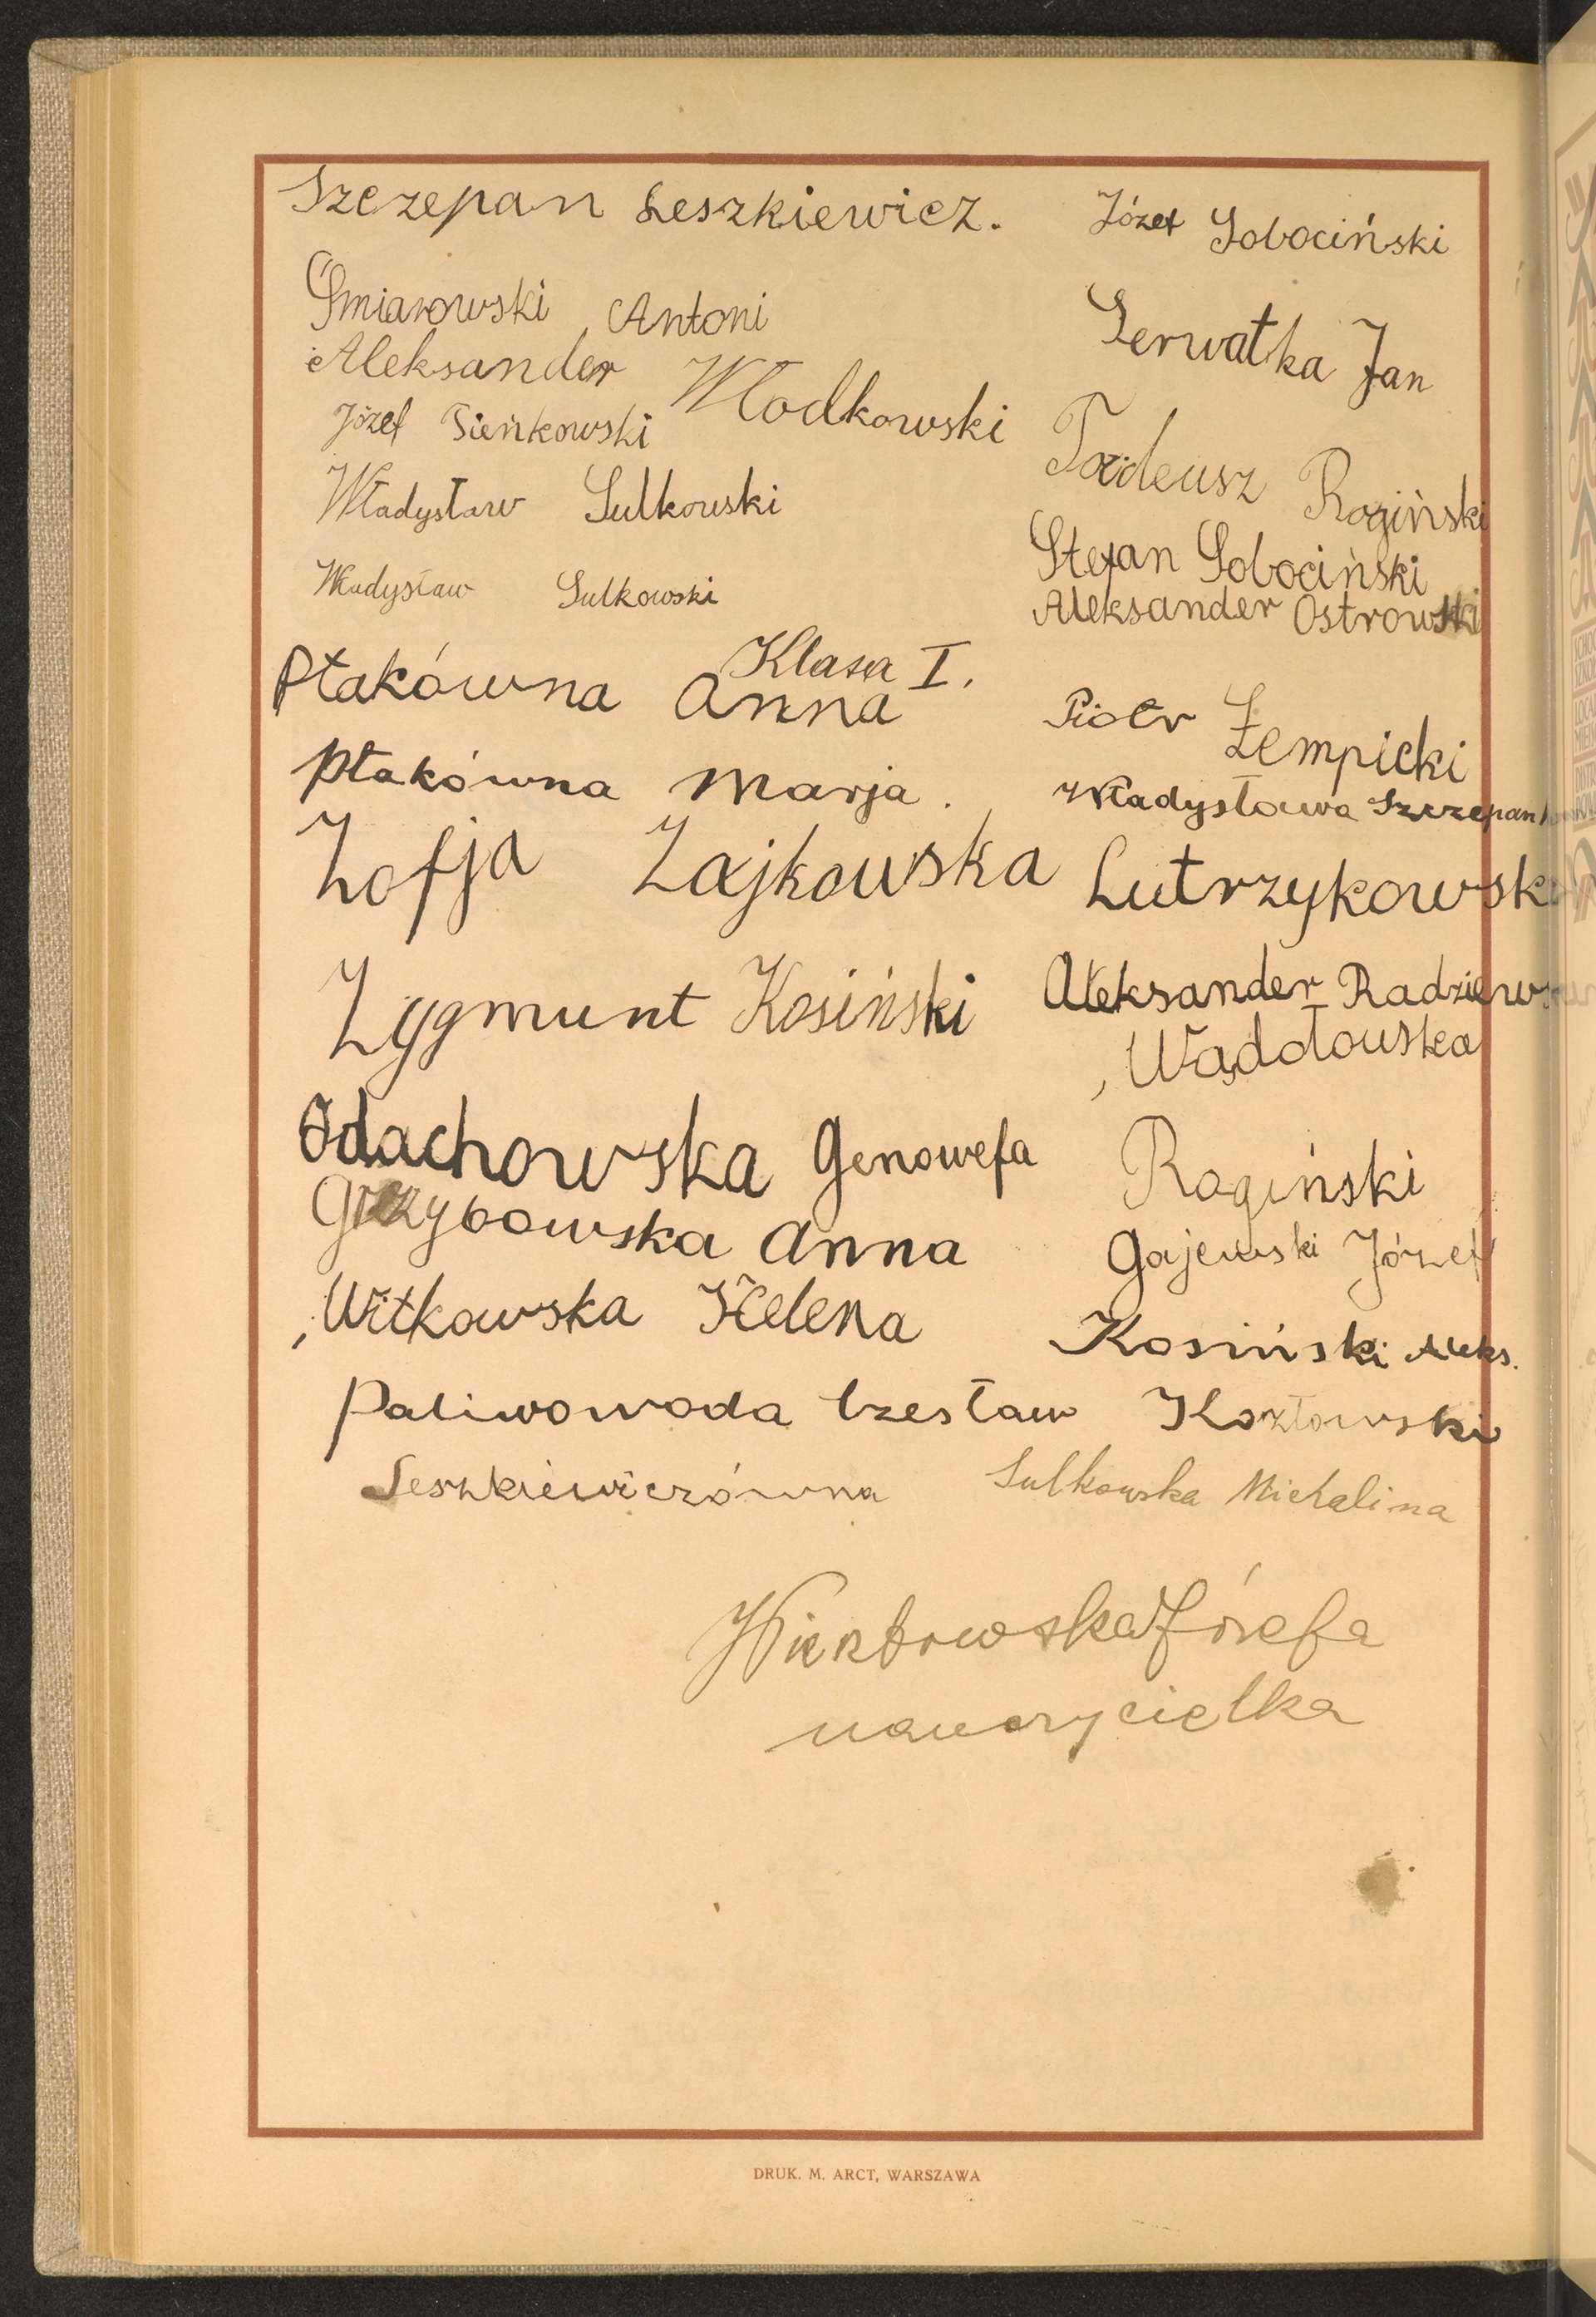 Szczepan Leszkiewicz.
Józef Sobociński
Śmiarowski Antoni
Serwatka Jan
Aleksander Włodkowski
Józef Sieńkowski
Tadeusz Rogiński
Władysław Sulkowski
Stefan Sobociński
Władysław Sulkowski
Aleksander Ostrowski
Klasa I.
Ptakówna Anna
Piotr Żempicki
Ptakówna Marja.
Władysława
Zofja Zajkowska
Lutrzykowsk
Zygmunt Kosiński
Aleksander Radziew
Wądołowska
Odachowska Genowefa
Rogiński
Grzybowska Anna
Gajewski Józef
Witkowska Helena
Kosiński Aleks.
Paliwowoda Czesław
Kozłowski
Leszkiewiczówna
Sulkowska Michalina
Józefa
nauczycielka
DRUK. M. ARCT, WARSZAWA